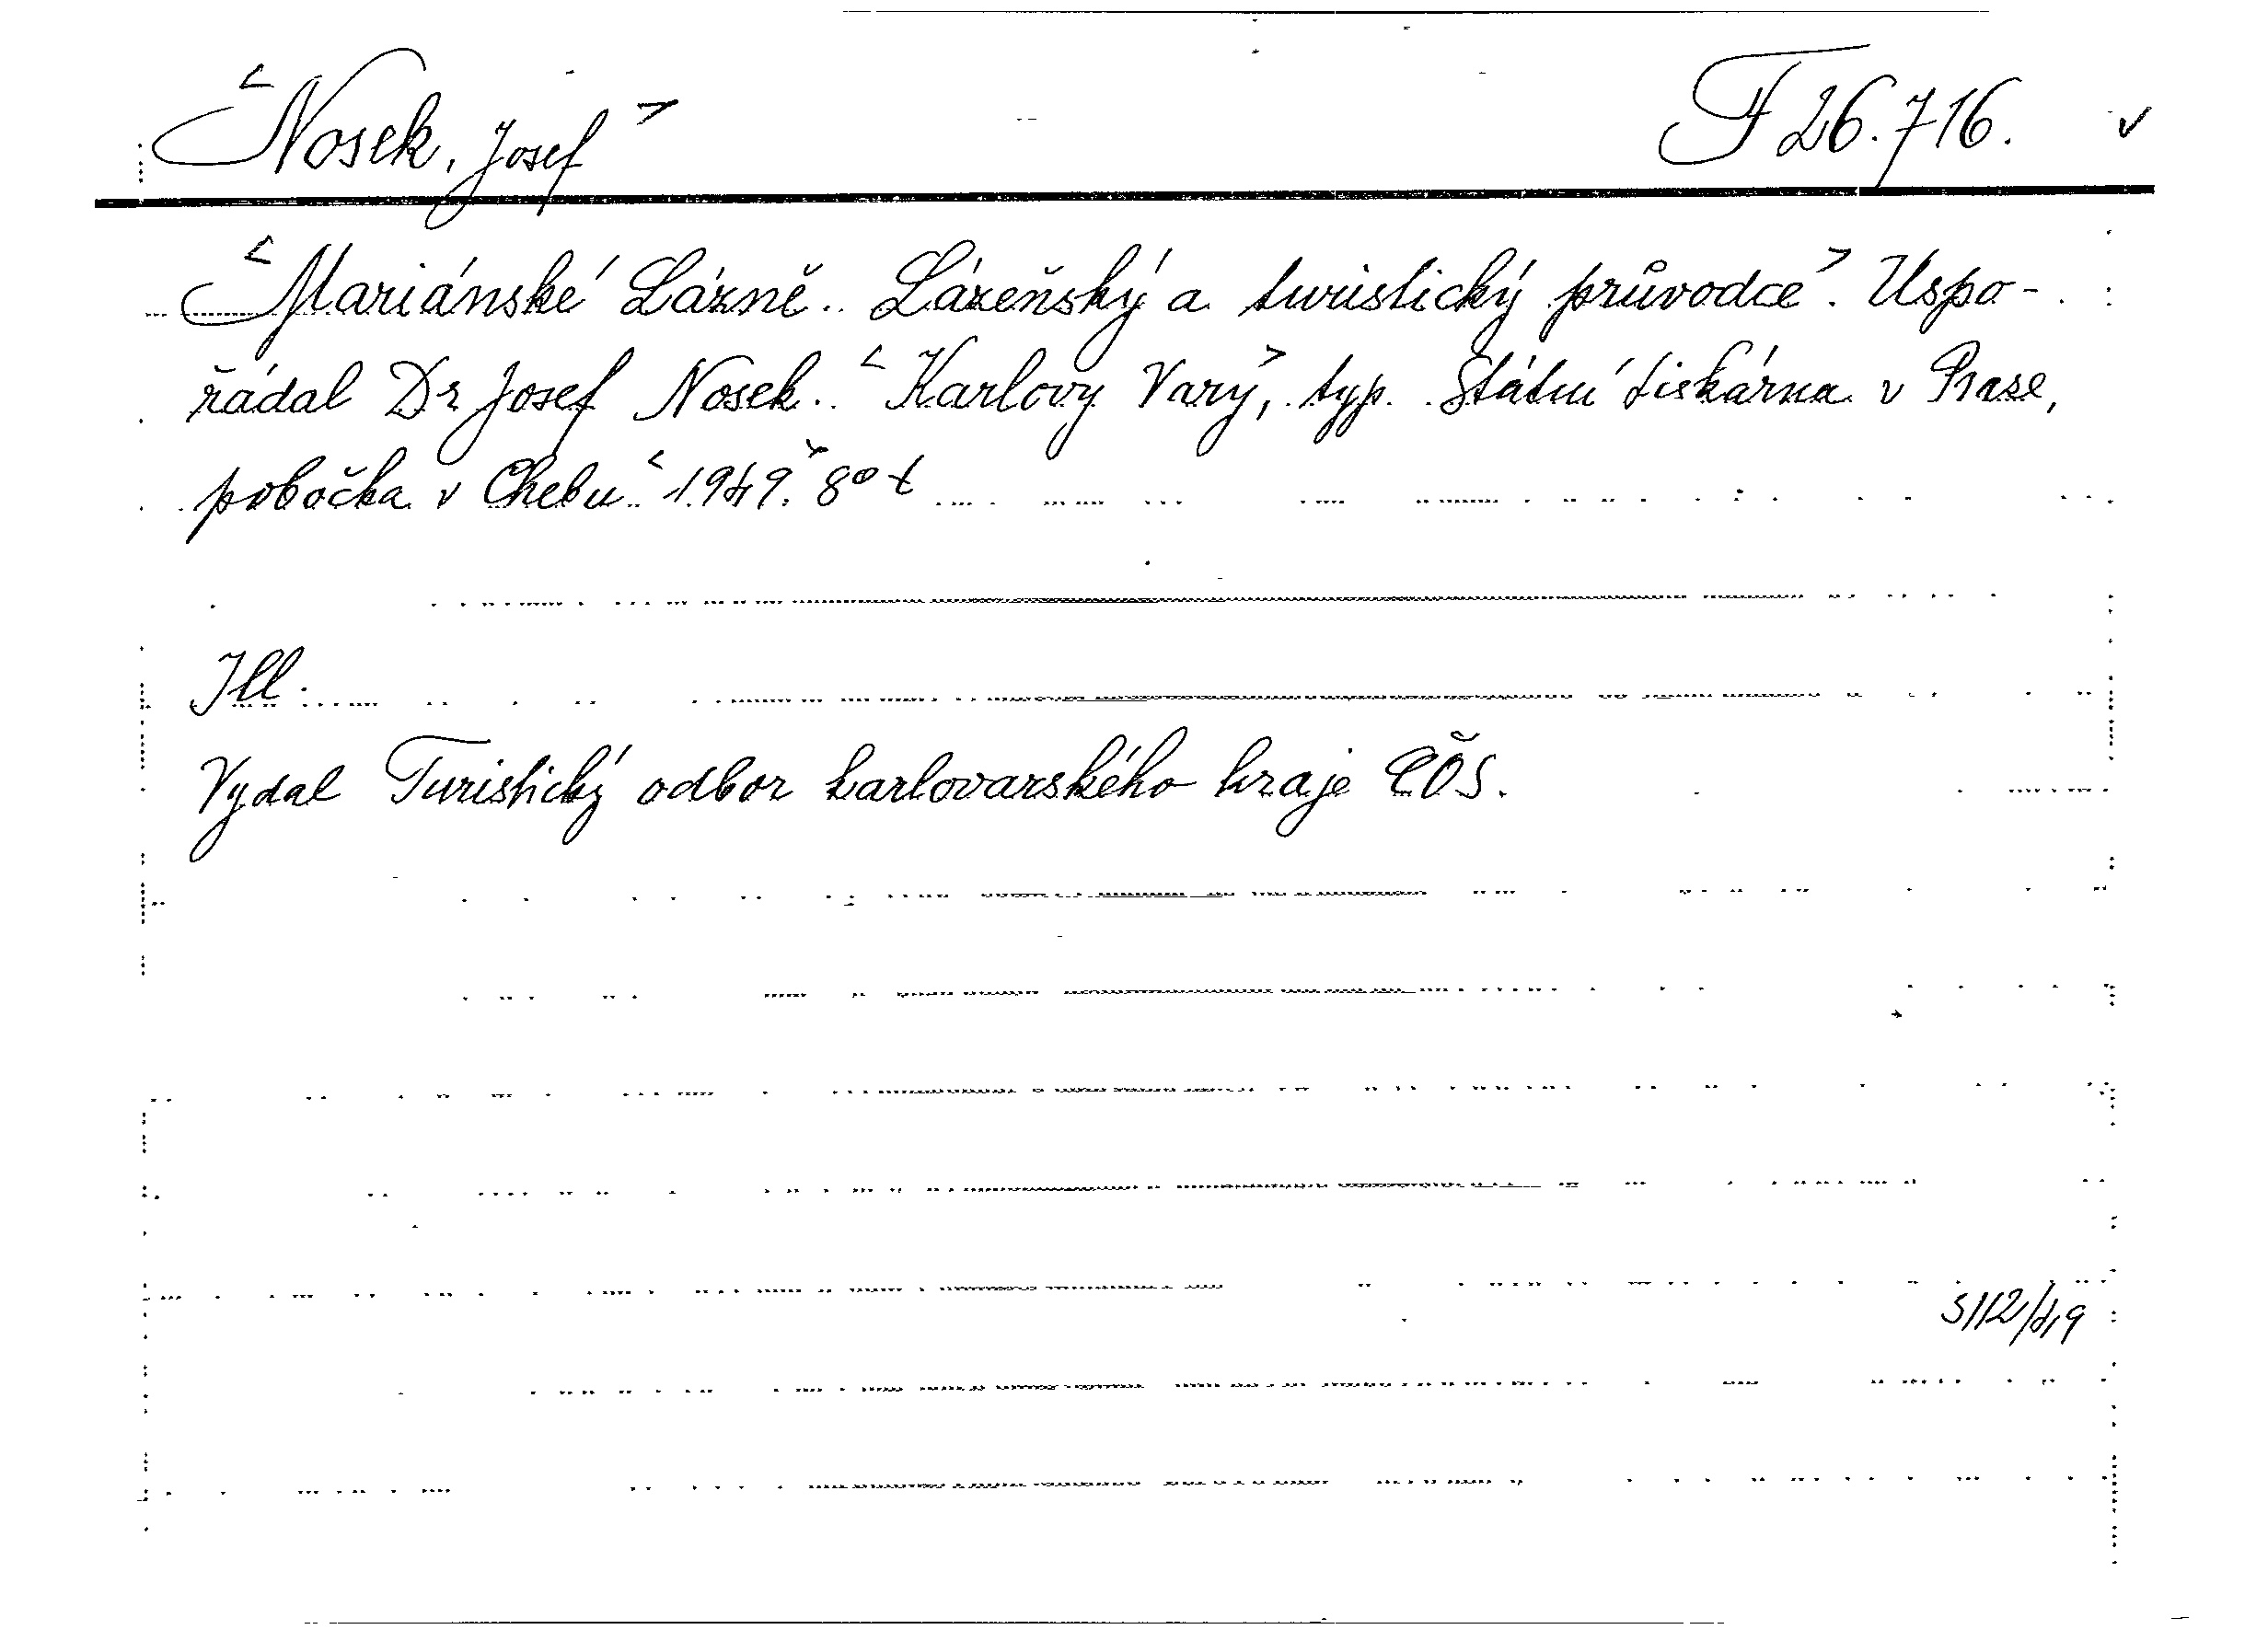 <Nosek, Josef> F 26.716. ✓
<Mariánské Lázně. Lázeňský a turistický průvodce>. Uspo-
řádal Dr Josef Nosek. <Karlovy Vary>, typ. Státní tiskárna v Praze,
pobočka v Chebu <1949.> 8° t
Ill.
Vydal Turistický odbor karlovarského kraje ČOS.